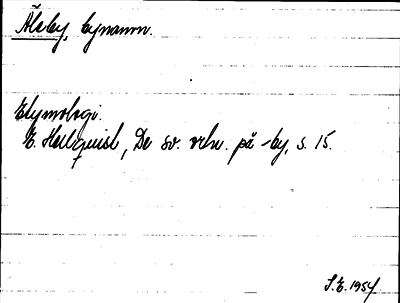 Ålsby, bynamn.
Etymologi.
E. Hellquist, De sv. ortn. på -by, s. 15.
S.E. 1954